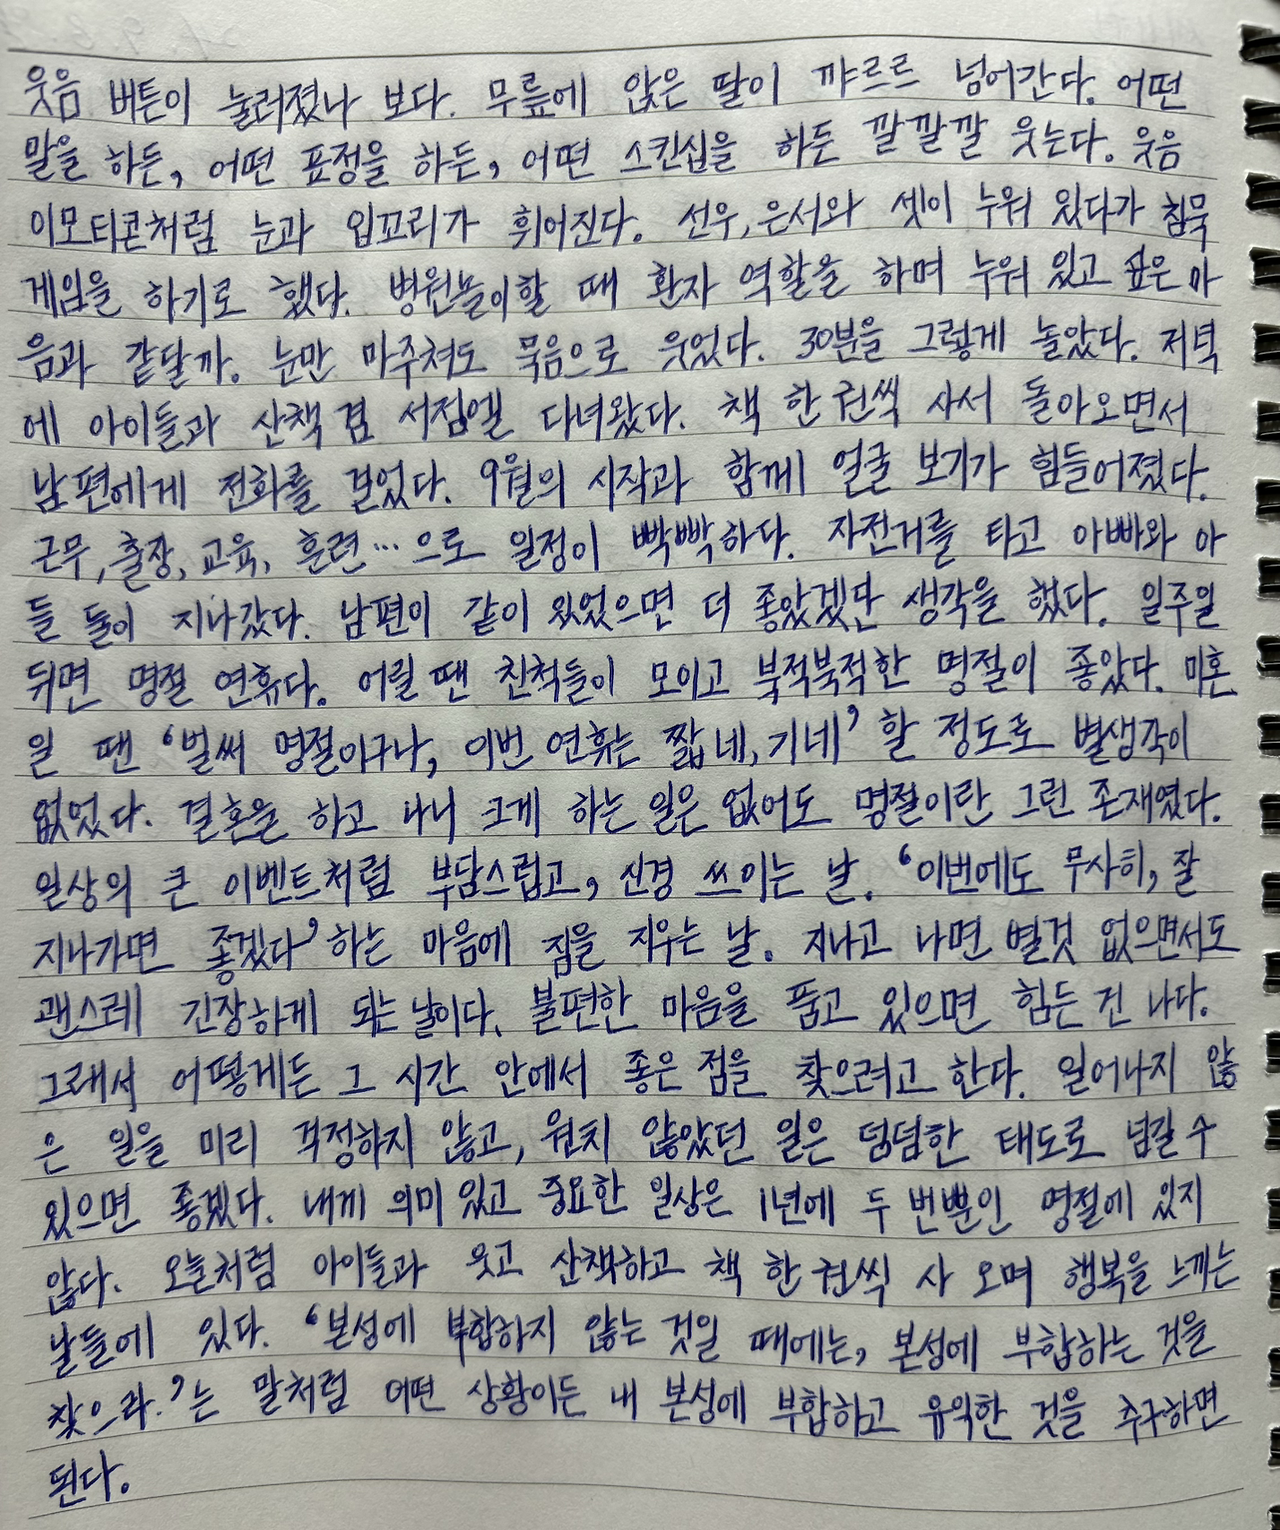 웃음 버튼이 눌러졌나 보다. 무릎에 앉은 딸이 꺄르르 넘어간다. 어떤
말을 하든, 어떤 표정을 하든, 어떤 스킨십을 하든 깔깔깔 웃는다. 웃음
이모티콘처럼 눈과 입꼬리가 휘어진다. 선우, 은서와 셋이 누워 있다가 침묵
게임을 하기로 했다. 병원놀이할 때 환자 역할을 하며 누워 있고 싶은 마
음과 같달까. 눈만 마주쳐도 묵음으로 웃었다. 30분을 그렇게 놀았다. 저녁
에 아이들과 산책 겸 서점엘 다녀왔다. 책 한 권씩 사서 돌아오면서
남편에게 전화를 걸었다. 9월의 시작과 함께 얼굴 보기가 힘들어졌다.
근무, 출장, 교육, 훈련…으로 일정이 빡빡하다. 자전거를 타고 아빠와 아
들 둘이 지나갔다. 남편이 같이 있었으면 더 좋았겠단 생각을 했다. 일주일
뒤면 명절 연휴다. 어릴 땐 친척들이 모이고 북적북적한 명절이 좋았다. 미혼
일 땐 ‘벌써 명절이구나, 이번 연휴는 짧네, 기네’ 할 정도로 별생각이
없었다. 결혼을 하고 나니 크게 하는 일은 없어도 명절이란 그런 존재였다.
일상의 큰 이벤트처럼 부담스럽고, 신경 쓰이는 날. ‘이번에도 무사히, 잘
지나가면 좋겠다’ 하는 마음에 짐을 지우는 날. 지나고 나면 별것 없으면서도
괜스레 긴장하게 되는 날이다. 불편한 마음을 품고 있으면 힘든 건 나다.
그래서 어떻게든 그 시간 안에서 좋은 점을 찾으려고 한다. 일어나지 않
은 일을 미리 걱정하지 않고, 원치 않았던 일은 덤덤한 태도로 넘길 수
있으면 좋겠다. 내게 의미 있고 중요한 일상은 1년에 두 번뿐인 명절에 있지
않다. 오늘처럼 아이들과 웃고 산책하고 책 한 권씩 사 오며 행복을 느끼는
날들에 있다. ‘본성에 부합하지 않는 것일 때에는, 본성에 부합하는 것을
찾으라.’는 말처럼 어떤 상황이든 내 본성에 부합하고 유익한 것을 추구하면
된다.